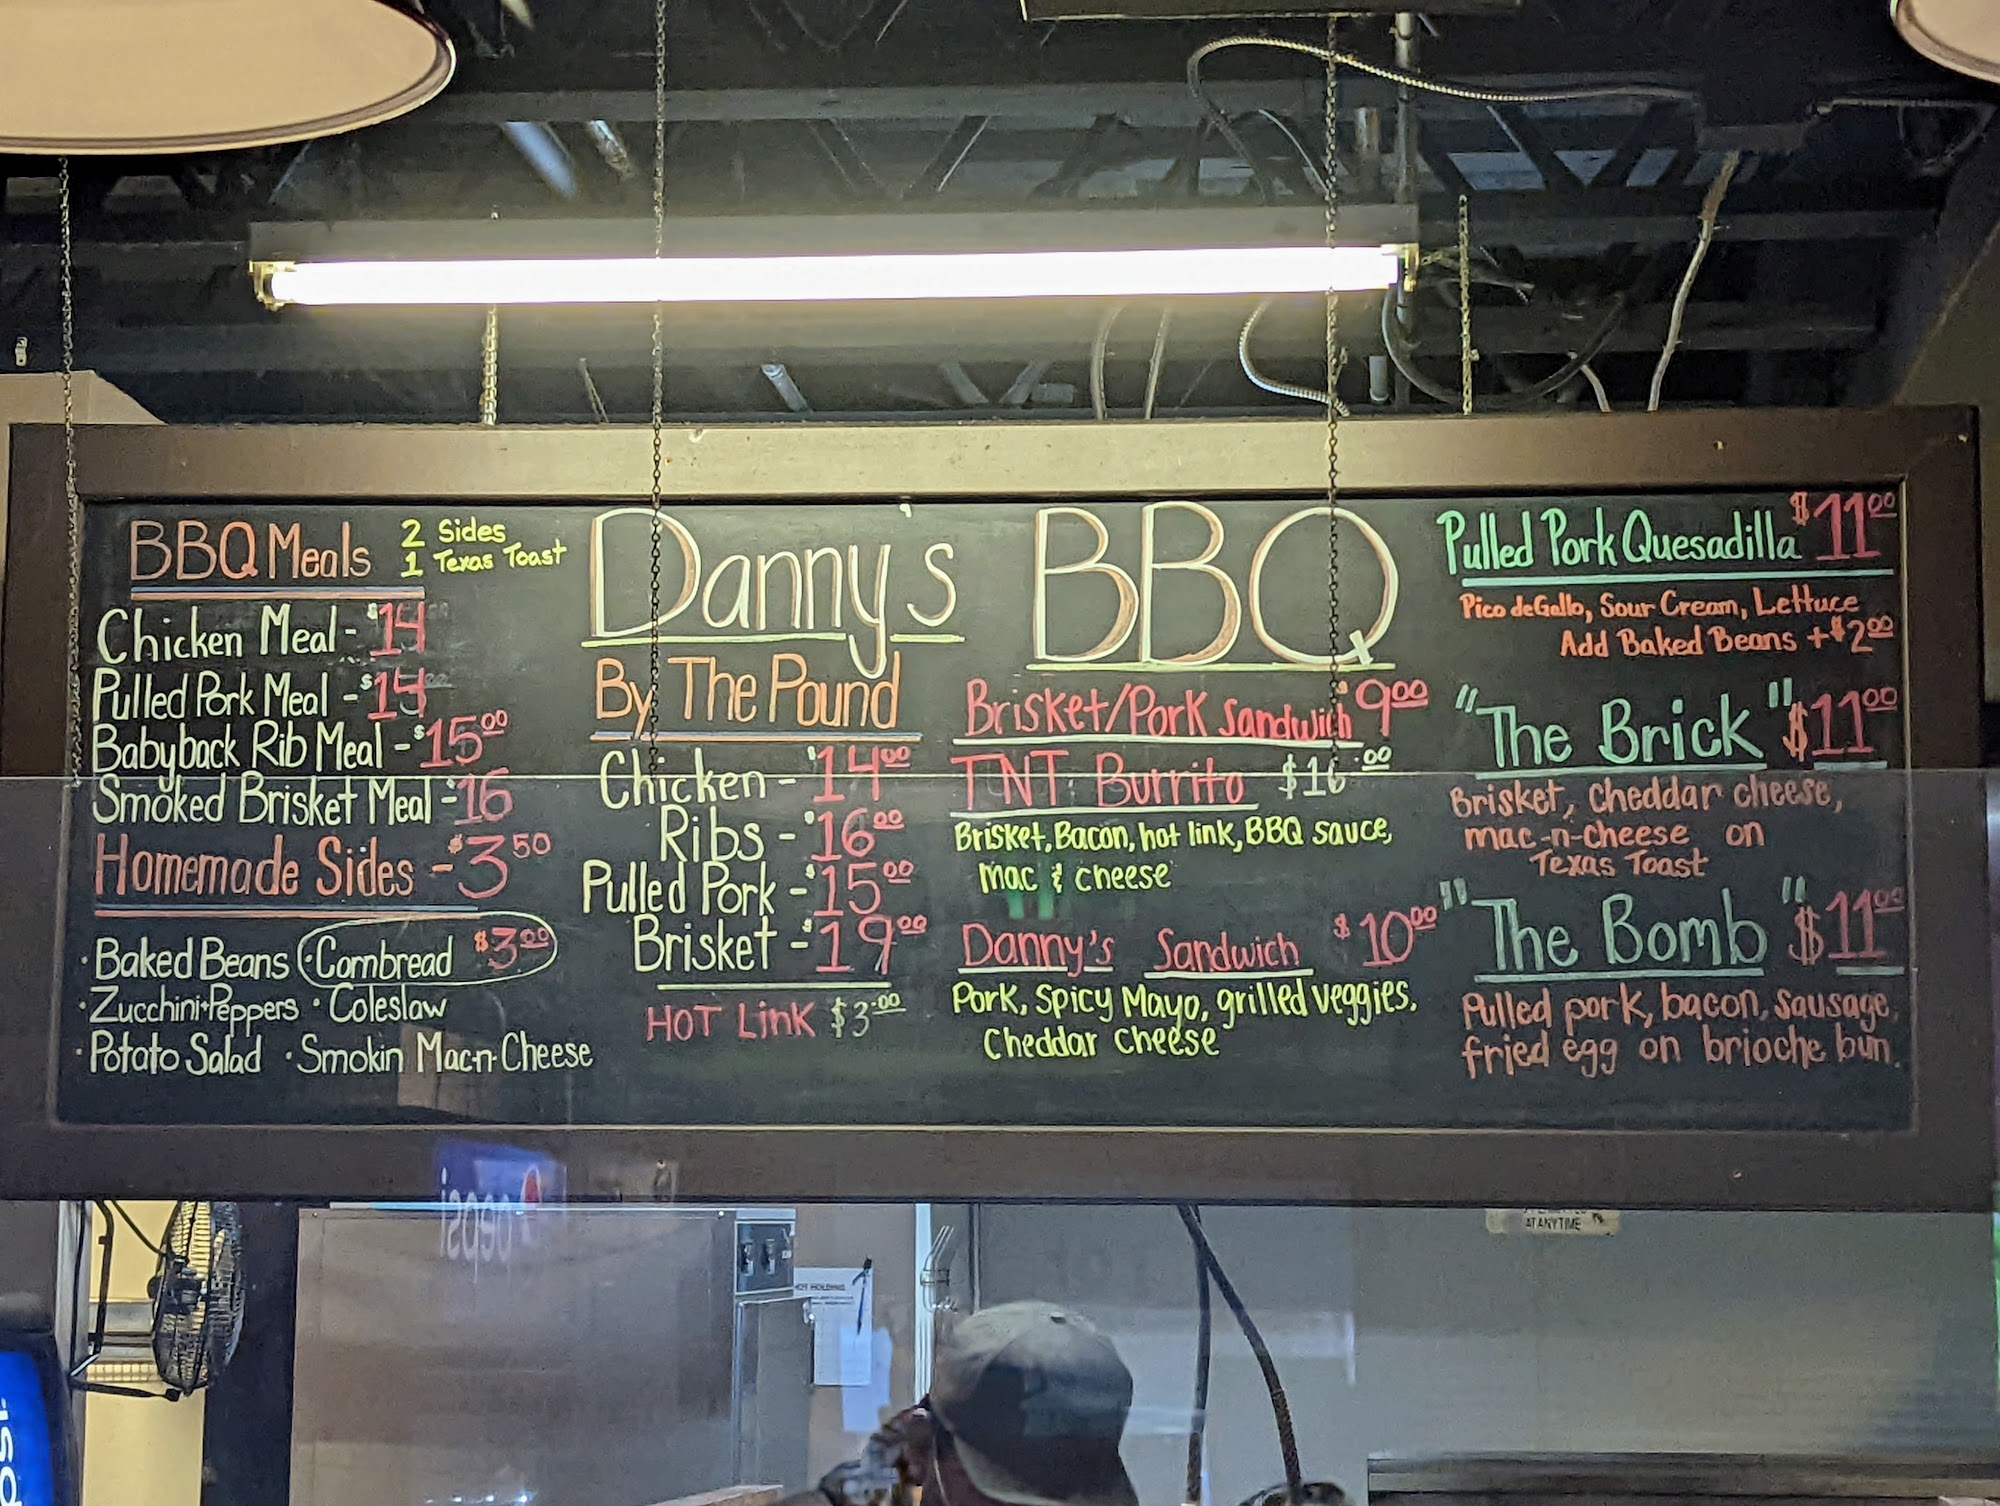 BBQ Meals
2 Sides
1 Texas Toast
Chicken Meal - $14
Pulled Pork Meal - $14
Babyback Rib Meal - $15.00
Smoked Brisket Meal - $16
Homemade Sides - $3.50
· Baked Beans · Cornbread $3.00
· Zucchini+Peppers · Coleslaw
· Potato Salad · Smokin Mac-n-Cheese
Danny's BBQ
By The Pound
Chicken - $14.00
Ribs - $16.00
Pulled Pork - $15.00
Brisket - $19.00
HOT Link $3.00
Brisket/Pork Sandwich $9.00
TNT Burrito $10.00
Brisket, Bacon, hot link, BBQ sauce,
mac & cheese
Danny's Sandwich $10.00
Pork, Spicy Mayo, grilled veggies,
Cheddar Cheese
Pulled Pork Quesadilla $11.00
Pico de Gallo, Sour Cream, Lettuce
Add Baked Beans + $2.00
"The Brick" $11.00
Brisket, Cheddar cheese,
mac-n-cheese on
Texas Toast
"The Bomb" $11.00
Pulled pork, bacon, sausage,
fried egg on brioche bun.
pepsi
AT ANY TIME
HOT HOLDING